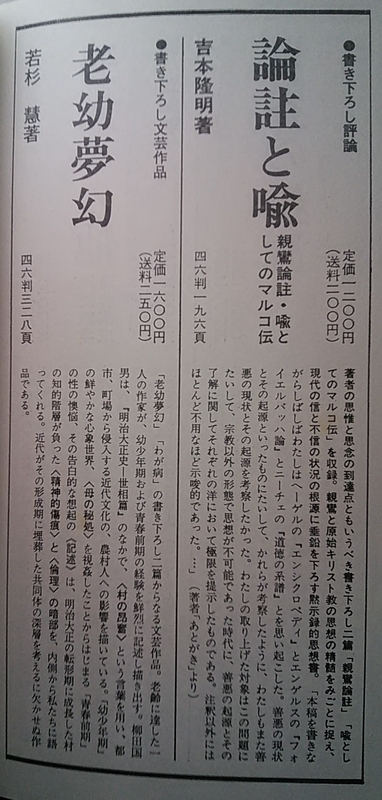 ●書き下ろし評論
論註と喩
親鸞論註・喩と
してのマルコ伝
定価一二〇〇円
(送料二〇〇円)
吉本隆明著
四六判一九六頁
著者の思惟と思念の到達点ともいうべき書き下ろし二篇「親鸞論註」「喩とし
てのマルコ伝」を収録。親鸞と原始キリスト教の思想の精髄をみごとに捉え、
現代の信と不信の状況の根源に垂鉛を下ろす黙示録的思想書。「本稿を書きな
がらしばしばわたしはヘーゲルの『エンシクロペディ』とエンゲルスの『フォ
イエルバッハ論』とニーチェの『道徳の系譜』とを思い起こした。善悪の現状
とその起源といったものにたいして、かれらが考察したように、わたしもまた善
悪の現状とその起源を考察したかった。わたしの取り上げた対象はこの問題に
たいして、宗教以外の形態で思想が不可能であった時代に、善悪の起源とその
了解に関してそれぞれの洋において極限を提示したものである。注釈以外には
ほとんど不用なほど示唆的であった。…」(著者「あとがき」より)
●書き下ろし文芸作品
老幼夢幻
定価一六〇〇円
(送料二五〇円)
若杉 慧著
四六判三二八頁
「老幼夢幻」「わが病」の書き下ろし二篇からなる文芸作品。老齢に達した一
人の作家が、幼少年期および青春前期の経験を鮮烈に記述し描き出す。柳田国
男は、『明治大正史―世相篇』のなかで、〈村の昂奮〉という言葉を用い、都
市、町場から侵入する近代文化の、農村人への影響を描いている。「幼少年期」
の鮮やかな心象世界、〈母の秘処〉を視姦したことからはじまる「青春前期」
の性の懊悩、その告白的な想起の〈記述〉は、明治大正の転形期に成長した村
の知的階層が負った〈精神的傷痕〉と〈倫理〉の暗部を、内側から私たちに語
ってくれる。近代がその形成期に埋葬した共同体の深層を考えるに欠かせぬ作
品である。